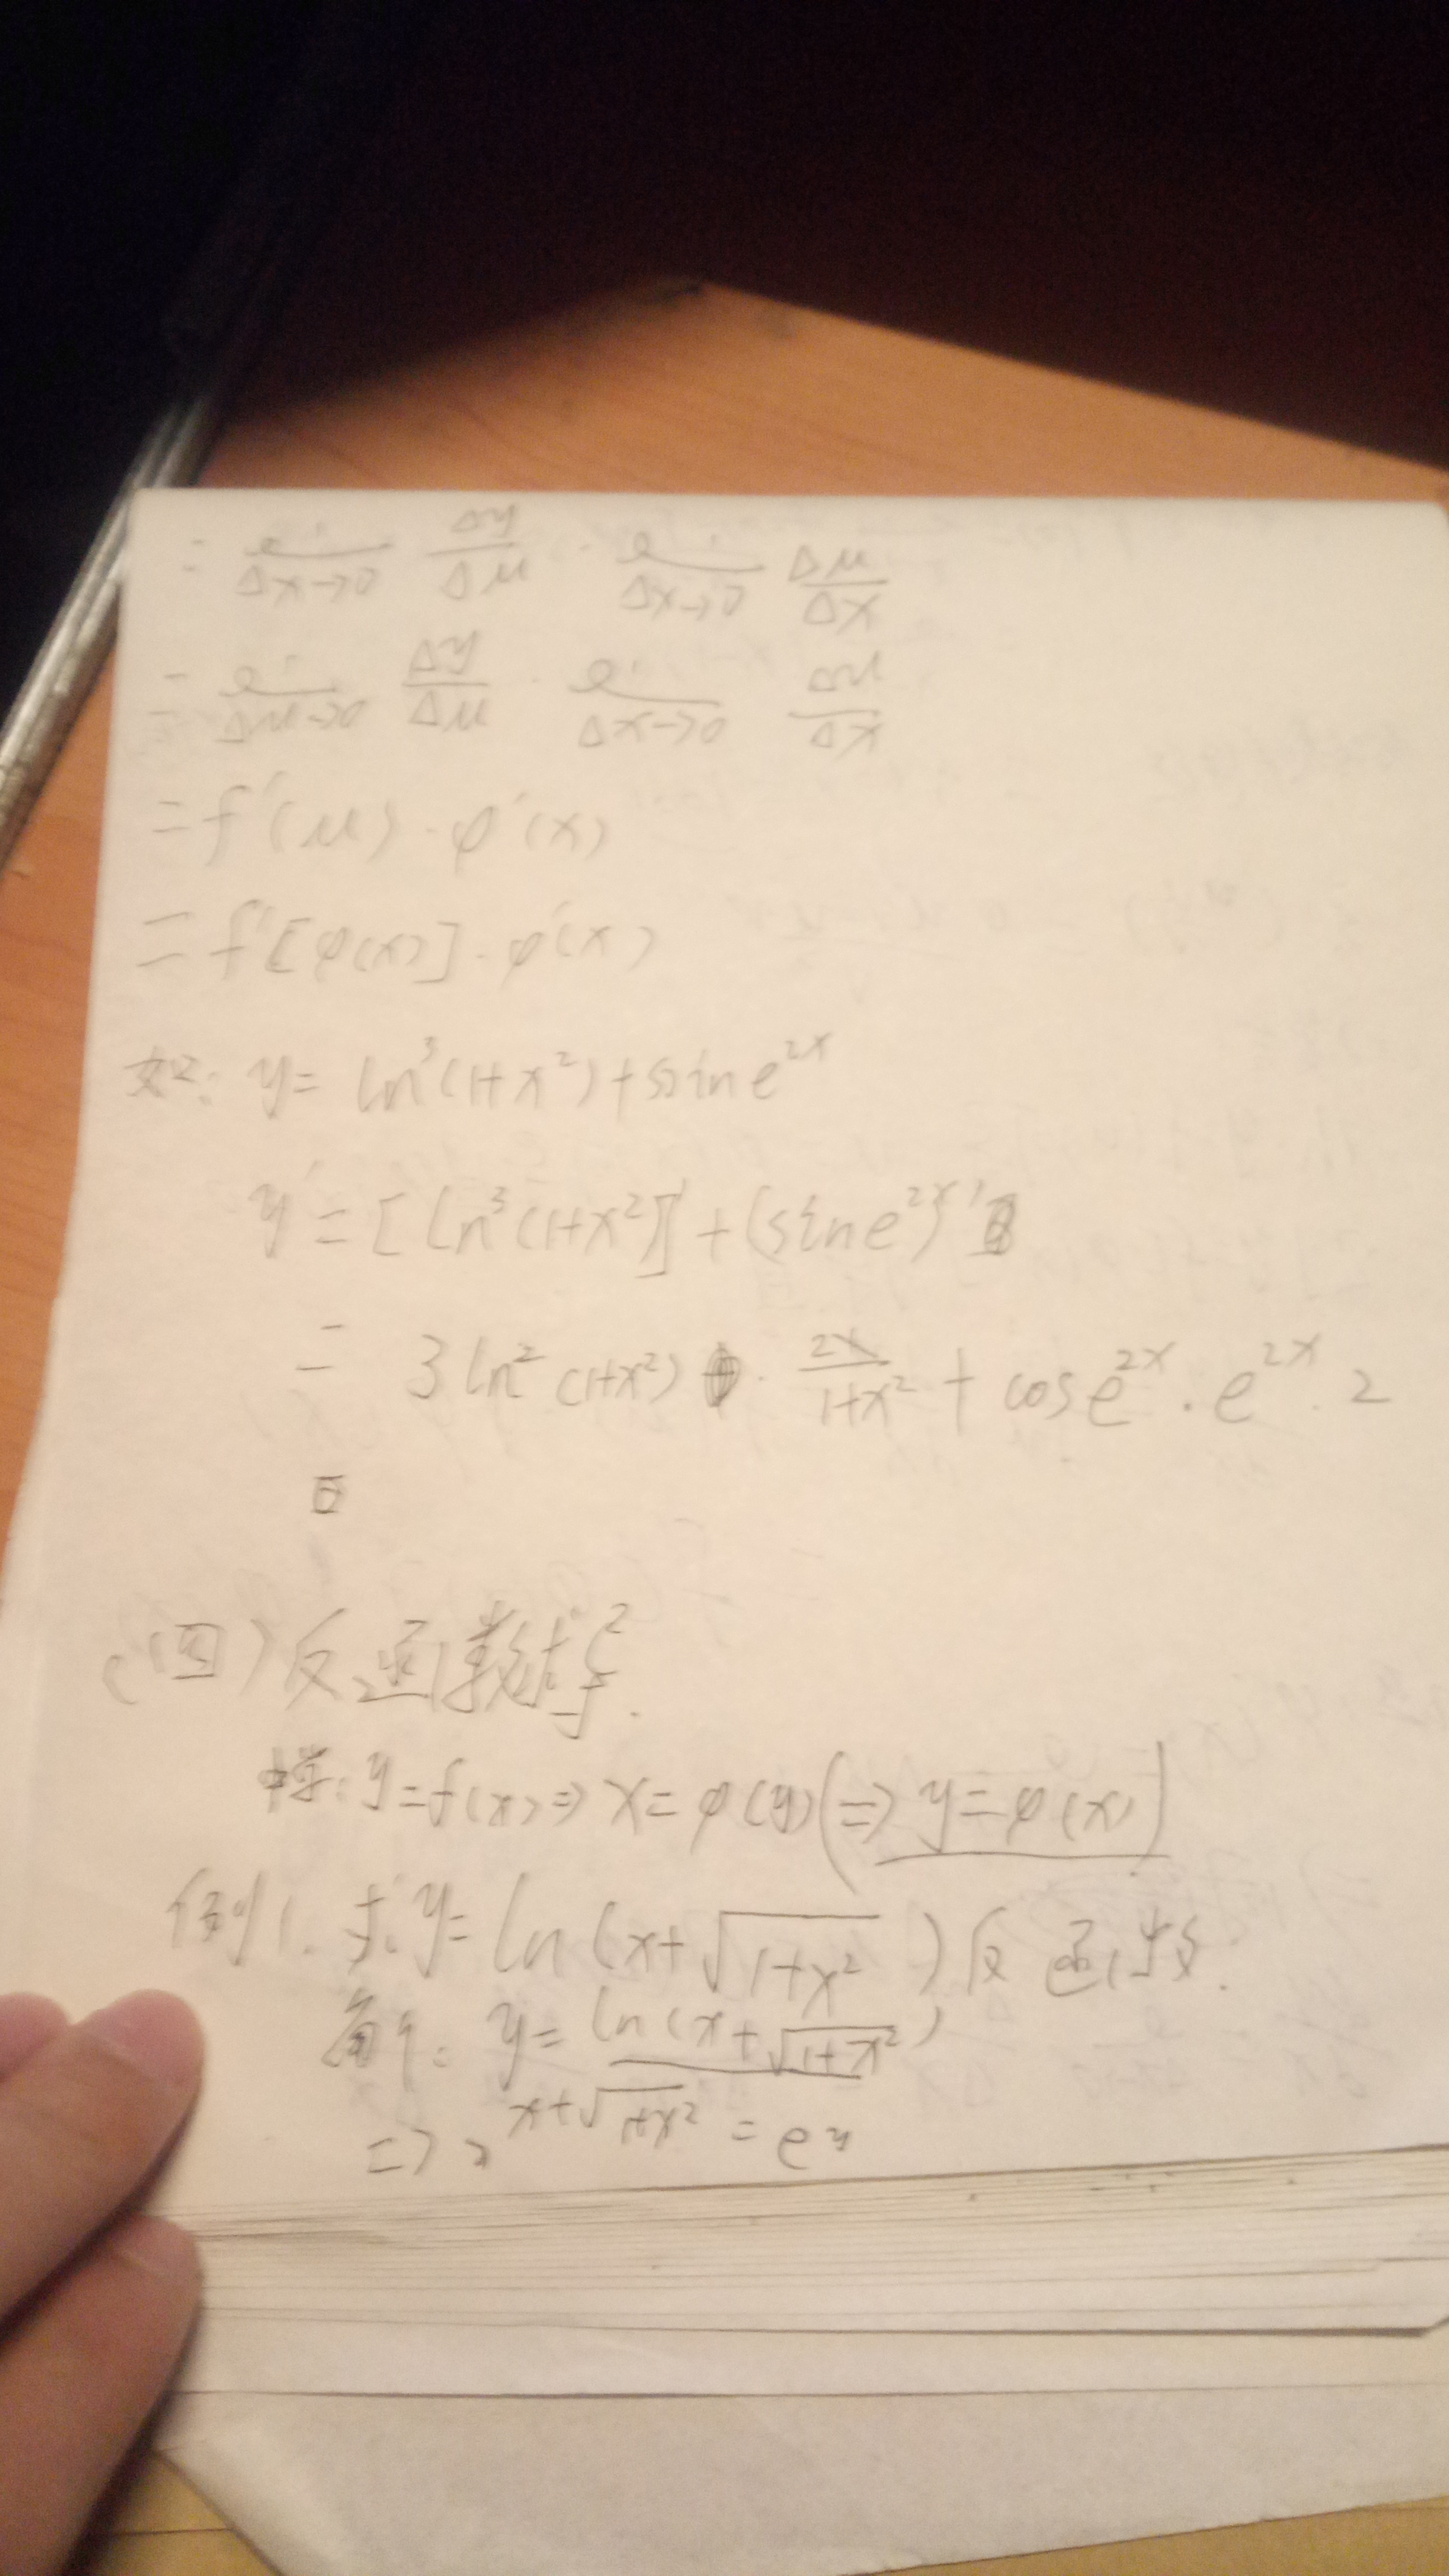 = lim Δx→0 Δy/Δμ · lim Δx→0 Δμ/Δx
= lim Δμ→0 Δy/Δμ · lim Δx→0 Δμ/Δx
= f'(μ) · φ'(x)
= f'[φ(x)] · φ'(x)
如: y = ln³(1+x²) + sin e^{2x}
y' = [ln³(1+x²)]' + (sin e^{2x})'
= 3 ln²(1+x²) · 2x/(1+x²) + cos e^{2x} · e^{2x} · 2
(四) 反函数求导.
中学: y = f(x) ⇒ x = φ(y) (⇒ y = φ(x))
例1. 求 y = ln(x+√(1+x²)) 反函数.
y = ln(x+√(1+x²))
⇒ x+√(1+x²) = e^y